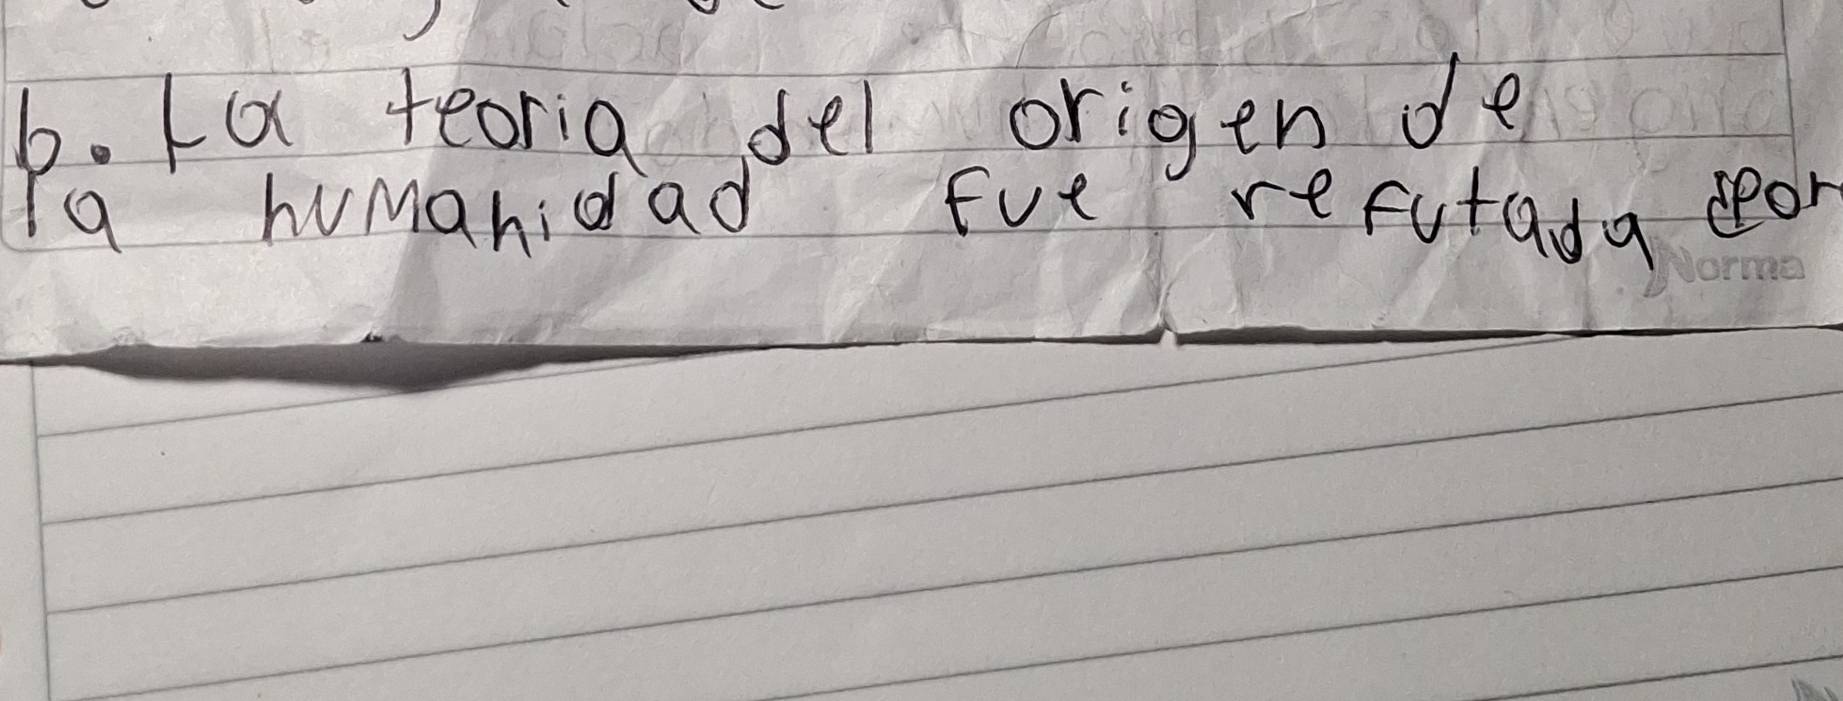 b. La teoria del origen de
la humanidad fue refutada por
Norma